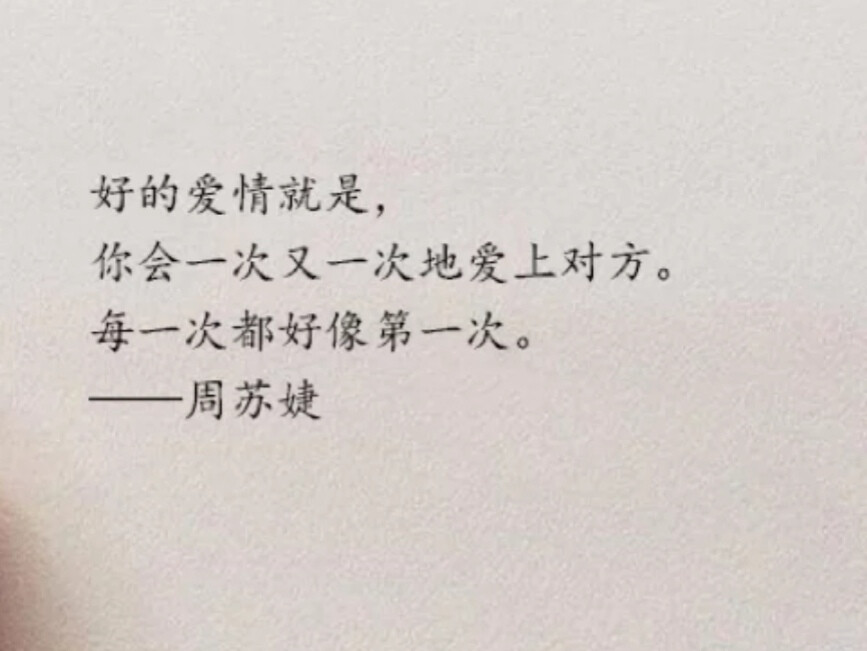 好的爱情就是，
你会一次又一次地爱上对方。
每一次都好像第一次。
——周苏婕